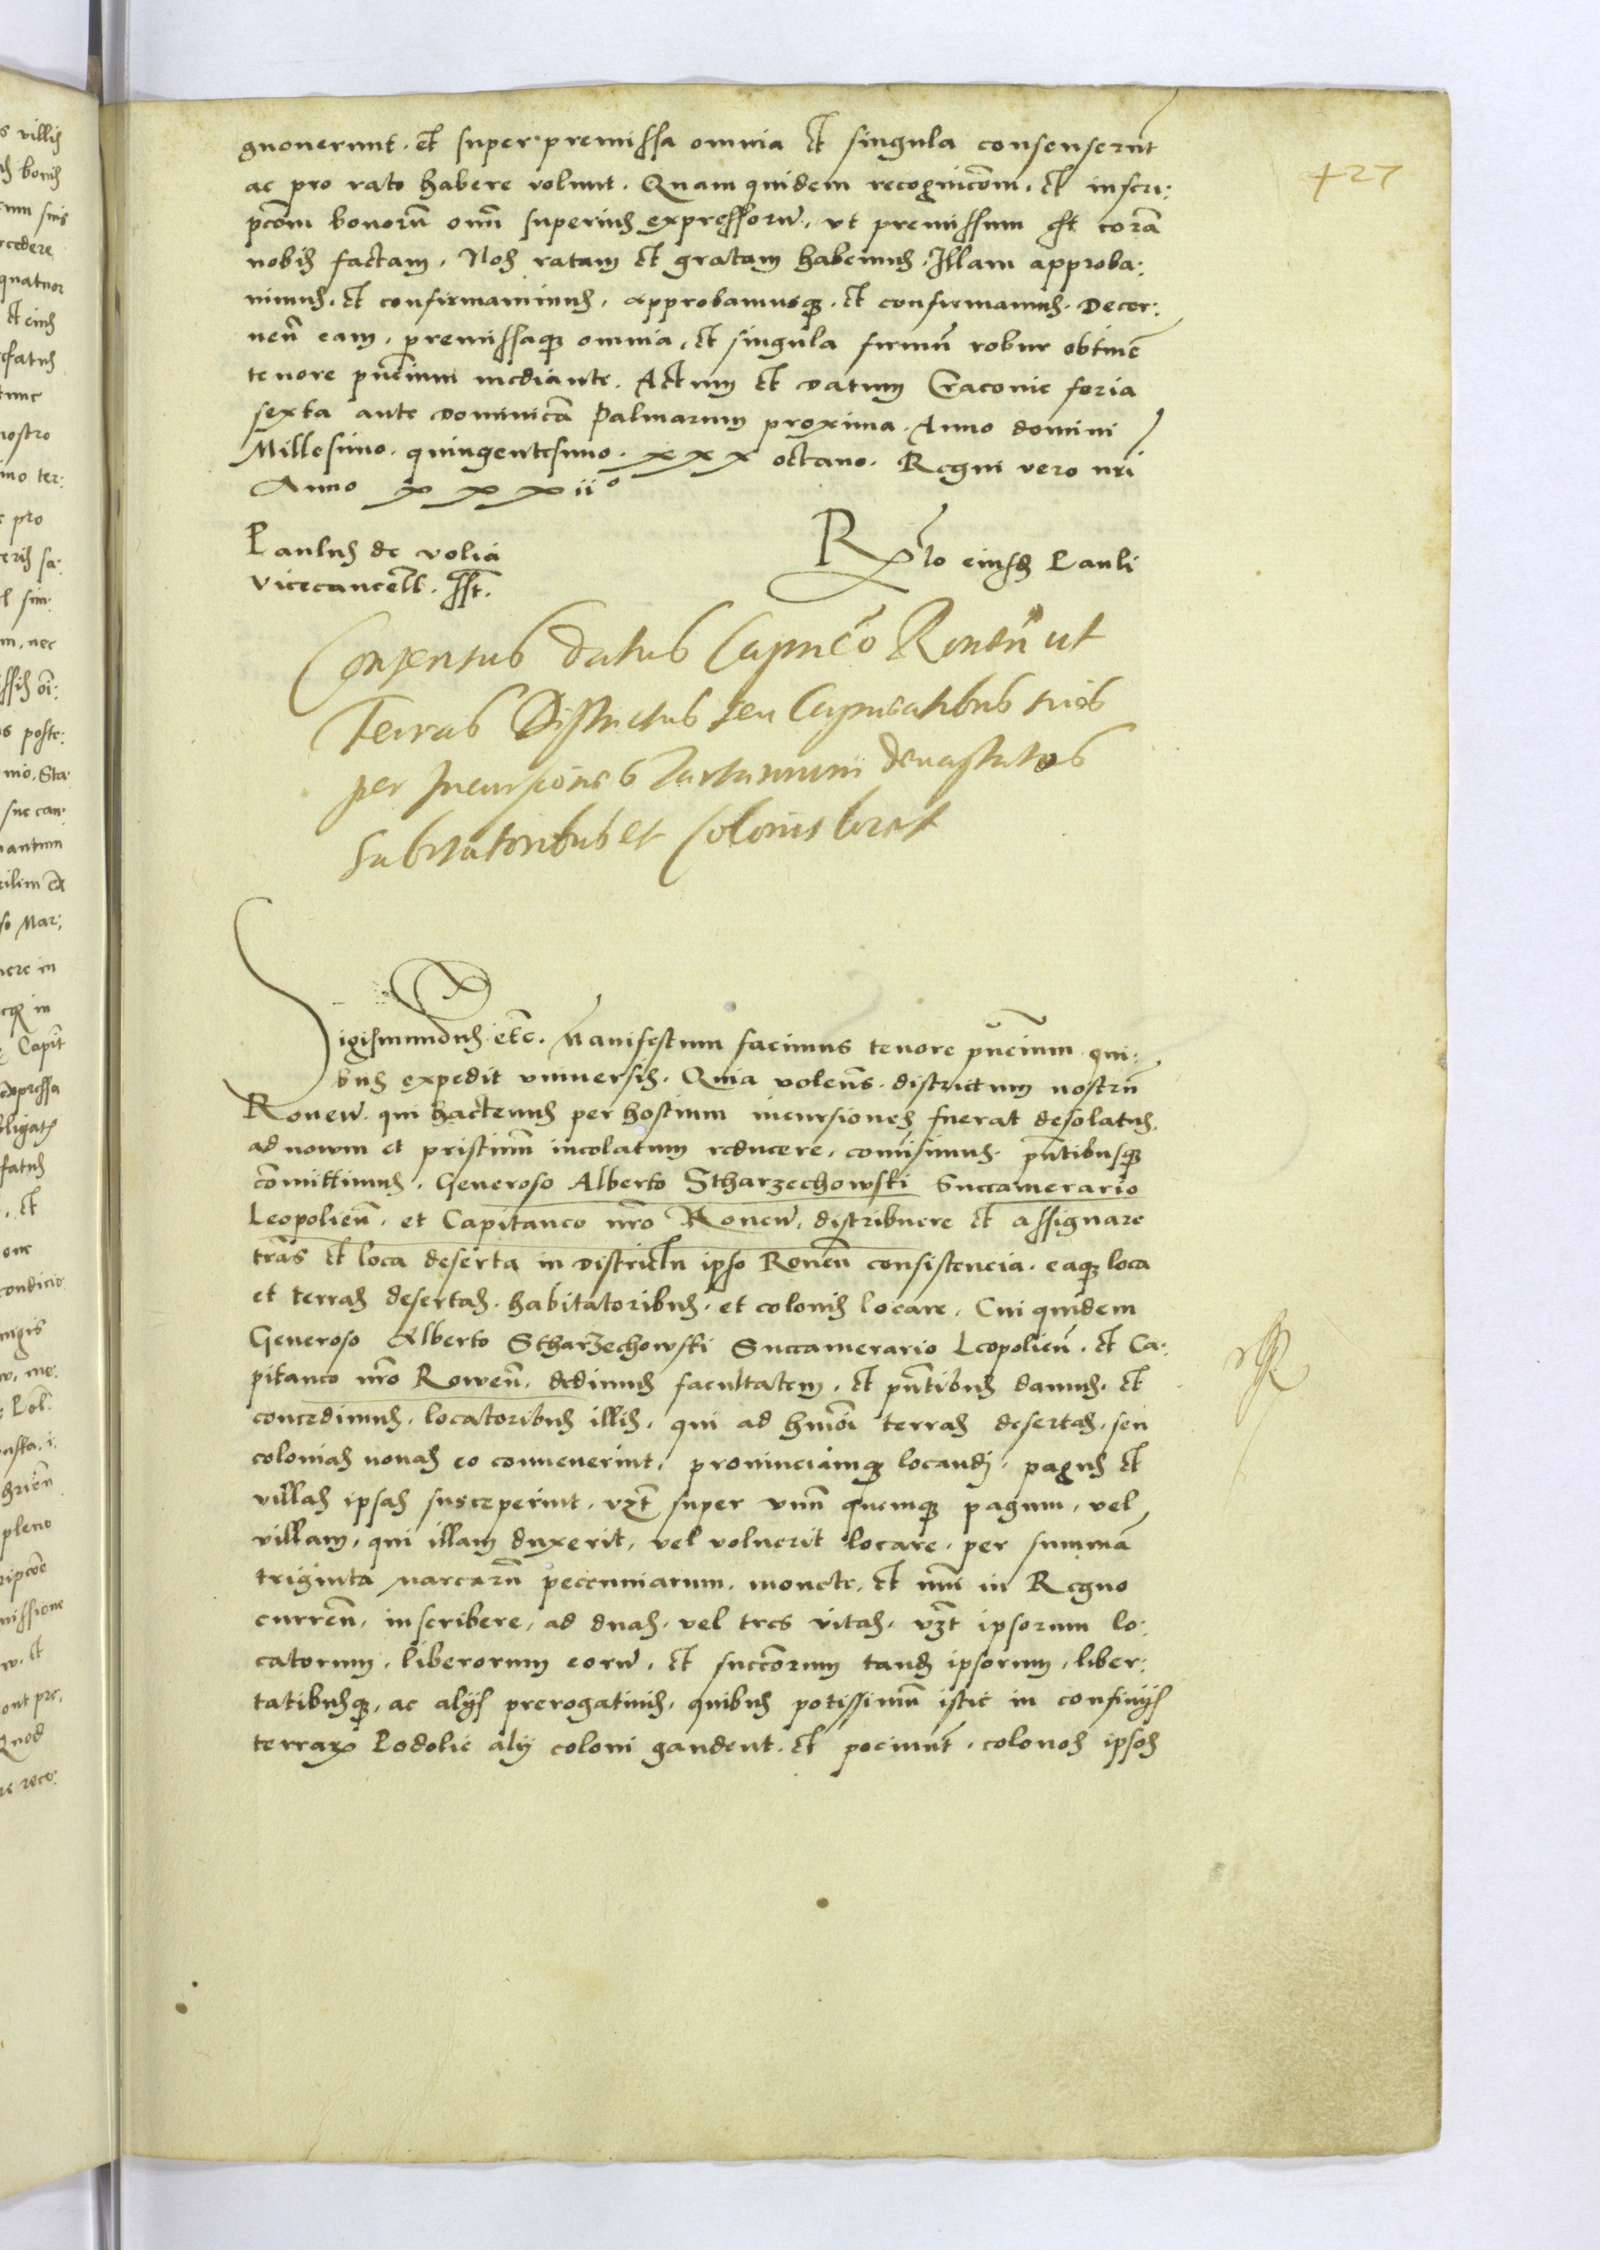 +27
gnoverunt. et super premissa omnia et singula consenserūt
ac pro rato habere volunt. Quam quidem recognicōem, et inscri:
pcōem bonorū oīm superius expressorū, ut premissum est corā
nobis factam, Nos ratam et gratam habemus. Illam approba:
vimus, et confirmavimus, approbamusq, et confirmamus. Decer:
nen̄ eam, premissaq omnia, et singula firmū robur obtinē
tenore pn̄cium mediante. Actum et datum Cracovie feria
sexta ante dominicā Palmarum proxima. Anno domini
Millesimo. quingentesimo. xxx octavo. Regni vero nr̄i
Anno xxxii°
Paulus de volia
vicecancell. sst.
Rlo eiusd Pauli
Consensus datus Capnēo Rovēn ut
Terras Districtus seu Capneatibus suis
per Incursiones Tartarorum devastatas
habitatoribus et Colonis locet
Sigismundus etc. Manifestum facimus tenore pn̄cium qui:
bus expedit universis. Quia volen̄s districtum nostrū
Roven. qui hactenus per hostium incursiones fuerat desolatus,
ad novum et pristinū incolatum reducere, comisimus. pn̄tibusq
cōmittimus, Generoso Alberto Stharzechowski Succamerario
Leopolien̄. et Capitaneo nr̄o Roven, distribuere et assignare
tr̄as et loca deserta in districtu ipso Roven̄ consistencia. eaq loca
et terras desertas. habitatoribus. et colonis locare. Cui quidem
Generoso Alberto Stharzechowski Succamerario Leopolien̄. et Ca:
pitaneo nr̄o Rowen̄. dedimus facultatem, et pn̄tibus damus. et
concedimus, locatoribus illis, qui ad hm̄oi terras desertas, seu
colonias novas eo convenerint, provinciamq locandi, pagus et
villas ipsas susceperint. vzt super unū quemq pagum, vel
villam, qui illam duxerit, vel voluerit locare, per summā
triginta marcarū pecuniarum, monete, et nūi in Regno
curren̄. inscribere, ad duas. vel tres vitas. vzt ipsorum lo:
catorum. liberorum eorū, et succ̄orum tand ipsorum, liber:
tatibusq, ac alijs prerogativis. quibus potissimū istic in confinijs
terrar Podolie alij coloni gaudent. et pociunt̄. colonos ipsos